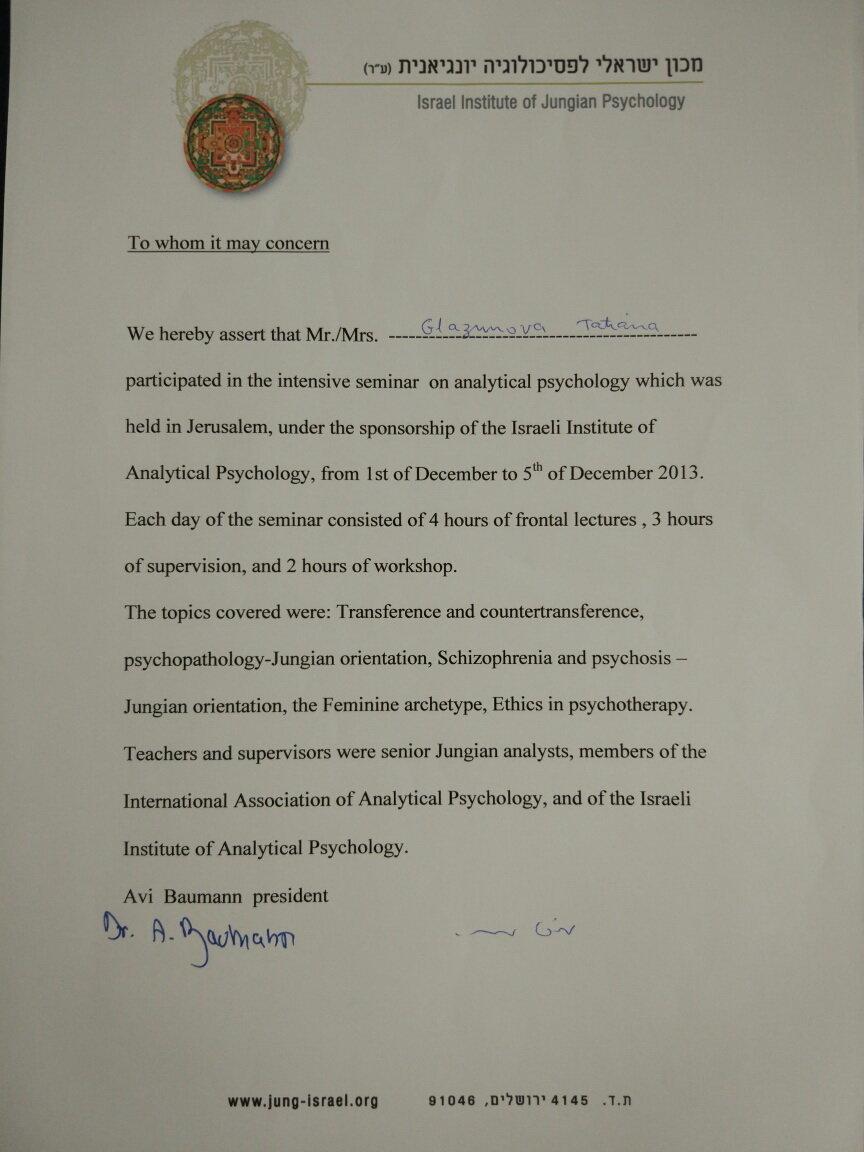 מכון ישראלי לפסיכולוגיה יונגיאנית (ע"ר)
Israel Institute of Jungian Psychology
To whom it may concern
We hereby assert that Mr./Mrs. Glazunova Tatiana
participated in the intensive seminar on analytical psychology which was
held in Jerusalem, under the sponsorship of the Israeli Institute of
Analytical Psychology, from 1st of December to 5th of December 2013.
Each day of the seminar consisted of 4 hours of frontal lectures , 3 hours
of supervision, and 2 hours of workshop.
The topics covered were: Transference and countertransference,
psychopathology-Jungian orientation, Schizophrenia and psychosis –
Jungian orientation, the Feminine archetype, Ethics in psychotherapy.
Teachers and supervisors were senior Jungian analysts, members of the
International Association of Analytical Psychology, and of the Israeli
Institute of Analytical Psychology.
Avi Baumann president
Dr. A. Baumann
www.jung-israel.org ת.ד. 4145 ירושלים, 91046